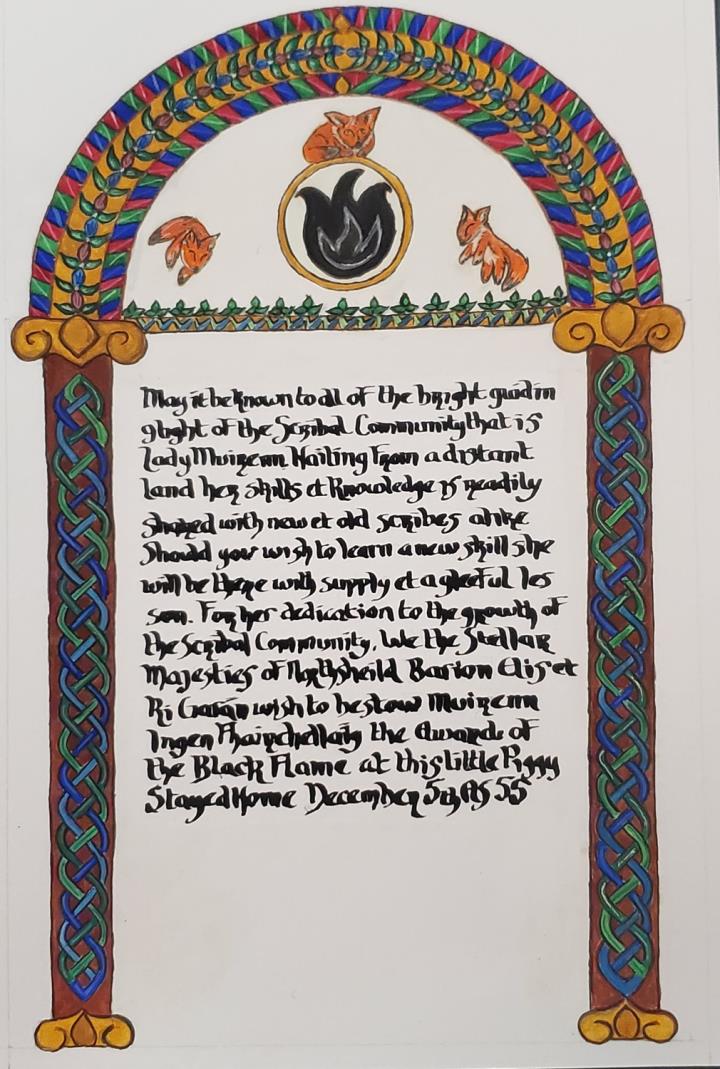 May it be known to all of the bright guidin
glight of the Scribal Community that is
Lady Muirenn Hailing From a distant
land her skills et Knowledge is readily
shared with new et old scribes alike
Should you wish to learn a new skill she
will be there with supply et a gleeful les
son. For her dedication to the growth of
the Scribal Community, We the Stellar
Majesties of Northsheild Barton Elis et
Ri Ciarán wish to bestow Muirenn
Ingen the Award of
the Black Flame at this little Piggy
Stayed Home December 5th AS 55